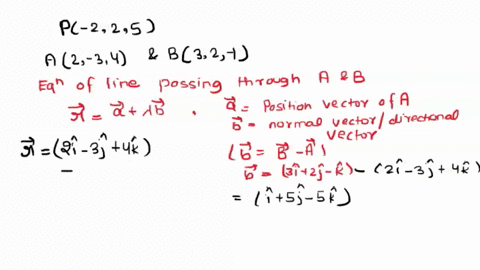 P(-2, 2, 5)
A(2, -3, 4) & B(3, 2, -1)
Eqⁿ of line possing through A & B
r⃗ = a⃗ + λb⃗ . a⃗ = Position vector of A
b⃗ = normal vector/directional vector
r⃗ = (2î - 3ĵ + 4k̂) (b⃗ = B⃗ - A⃗)
b⃗ = (3î + 2ĵ - k̂) - (2î - 3ĵ + 4k̂)
= (î + 5ĵ - 5k̂)